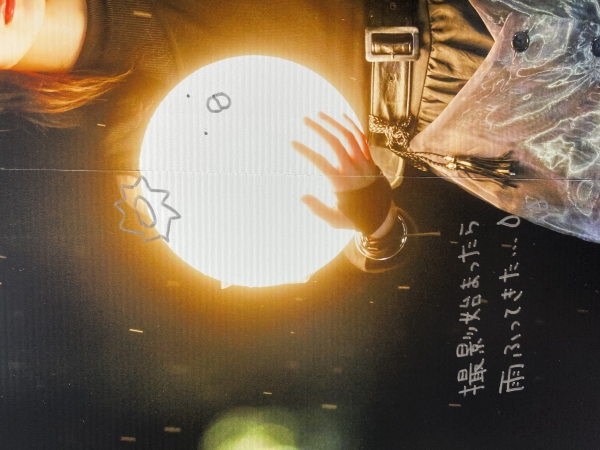 撮影始まったら
雨ふってきた…